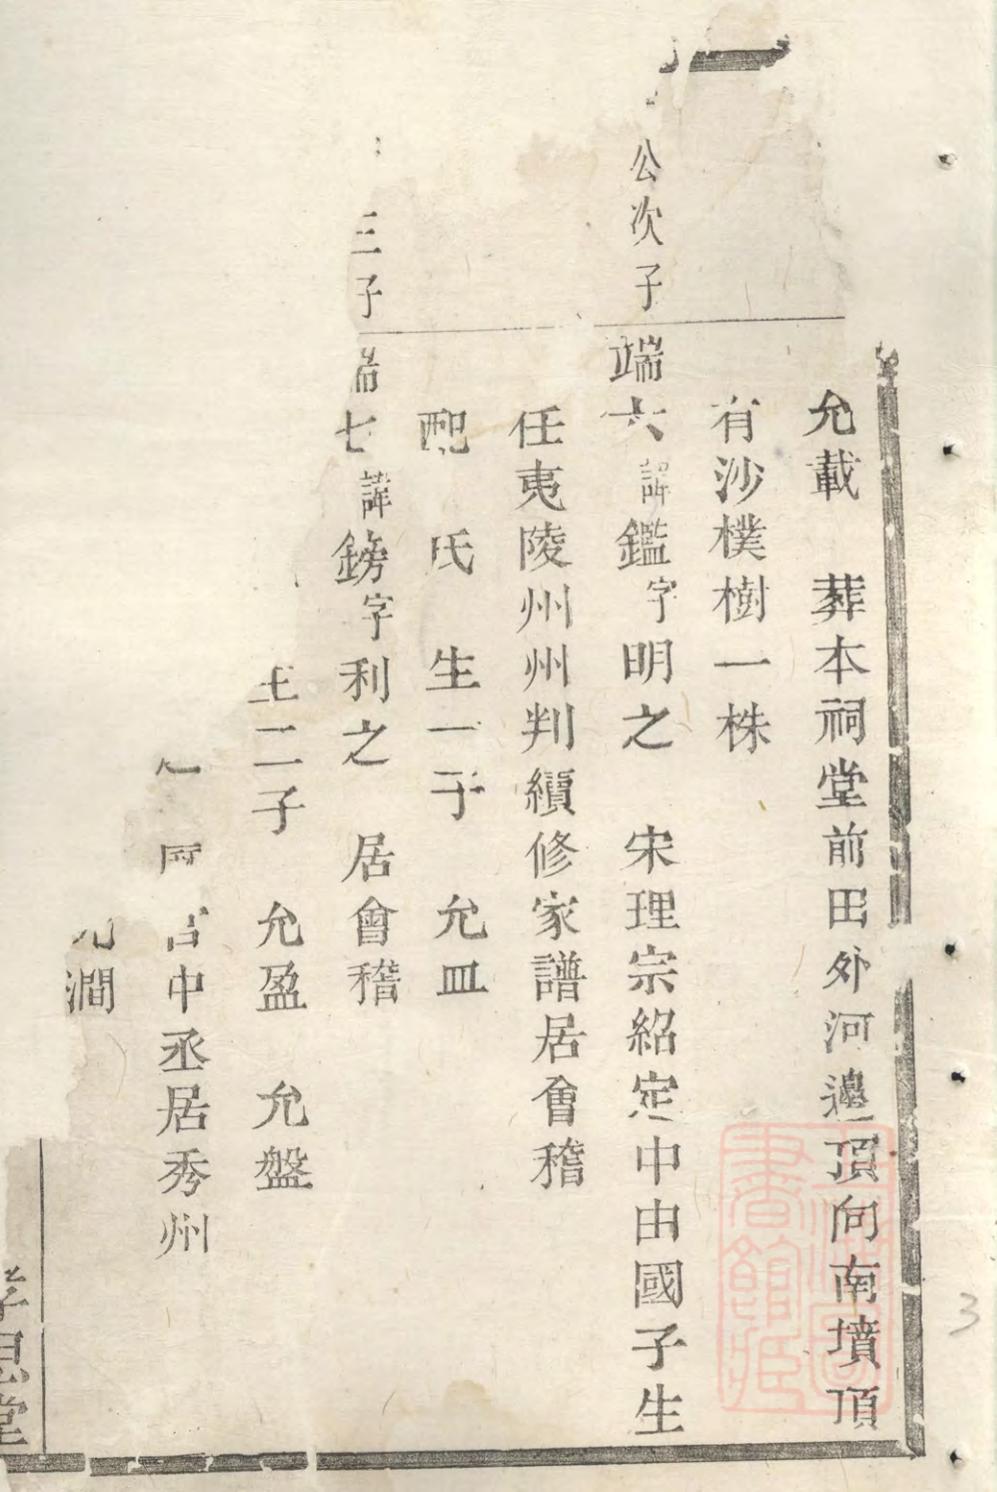 允載 葬本祠堂前田外河邊頂向南墳頂
有沙樸樹一株
公次子
端六諱鑑字明之 宋理宗紹定中由國子生
任夷陵州州判續修家譜居會稽
配 氏 生一子 允皿
三子
端七諱鎊字利之 居會稽
生二子 允盈 允盤
中丞居秀州
允澗
孝思堂
3